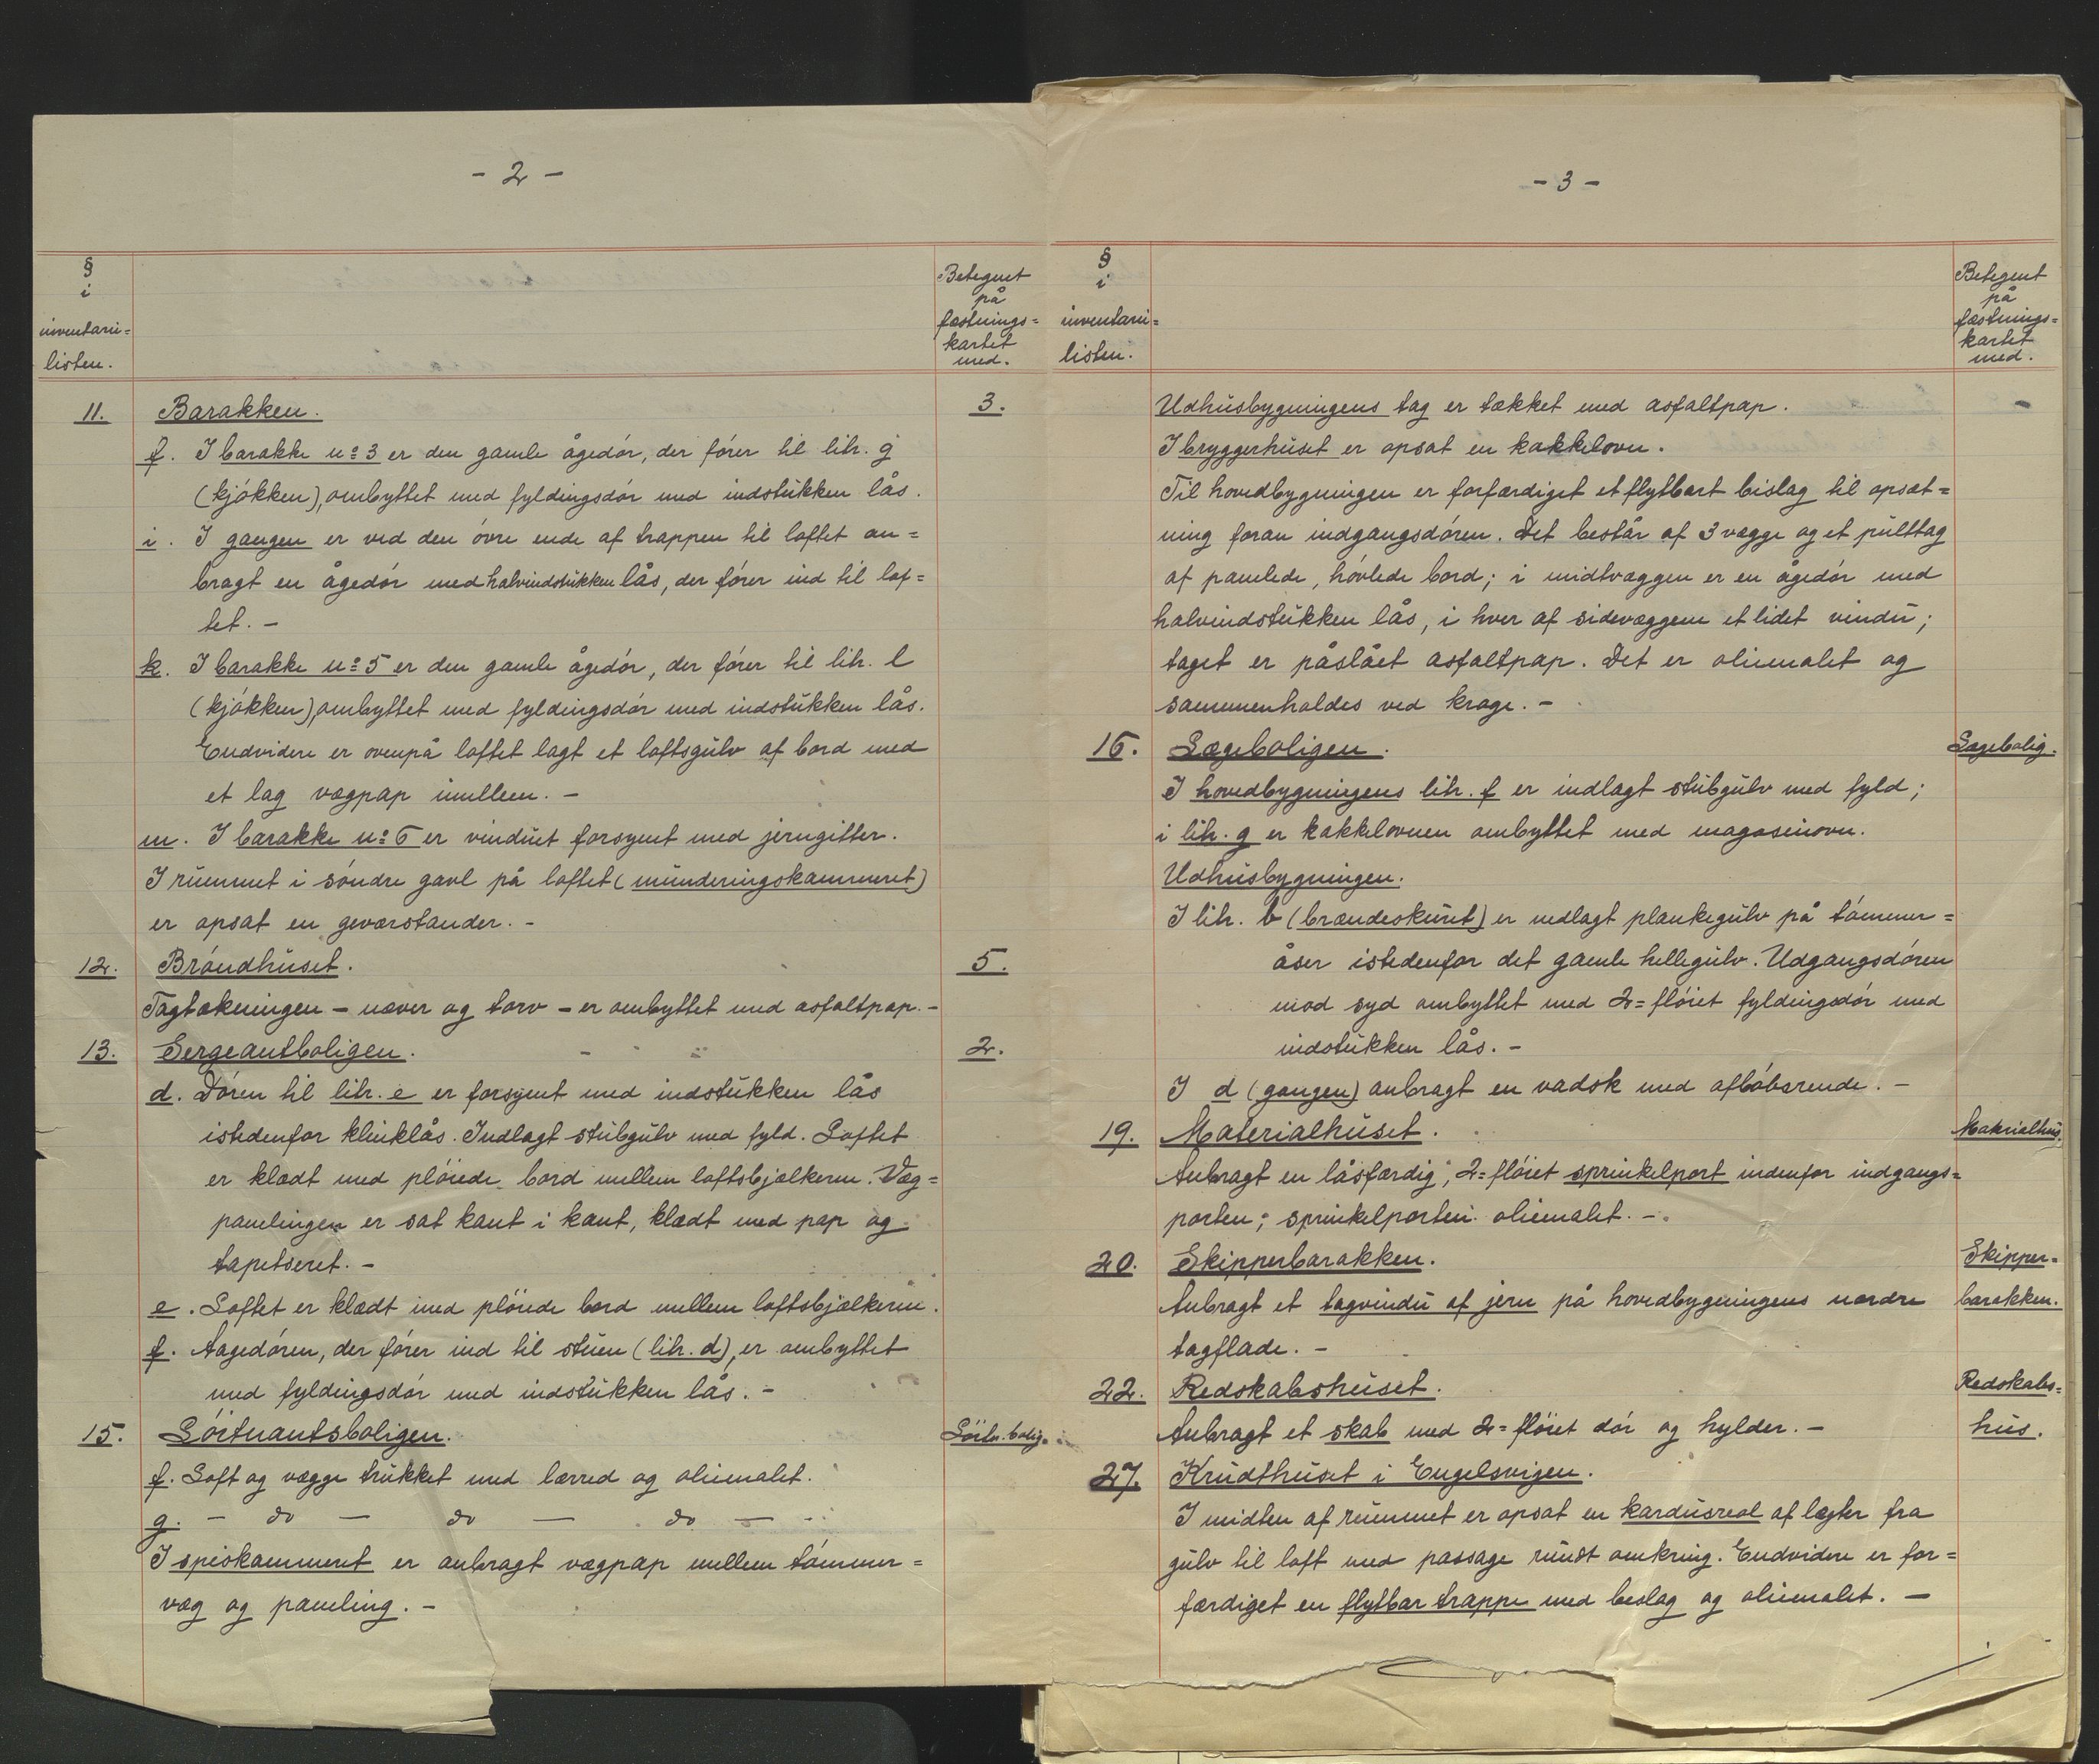 - 2 -
§
i
inventarii=
listen.
Betegnet
på
fæstnings=
kartet
med.
11. Barakken. 3.
f. I barakke no 3 er den gamle ågedór, der fórer til litr. g
(kjókken), ombyttet med fyldingsdór med indstukken lås.
i. I gangen er ved den óvre ende af trappen til loftet an=
bragt en ågedór med halvindstukken lås, der fórer ind til lof=
tet. -
k. I barakke no 5 er den gamle ågedór, der fórer til litr. l
(kjókken), ombyttet med fyldingsdór med indstukken lås.
Endvidere er ovenpå loftet lagt et loftsgulv af bord med
et lag vægpap imellem. -
m. I barakke no 6 er vinduet forsynet med jerngitter.
I rummet i sóndre gavl på loftet (munderingskammeret)
er opsat en geværstander. -
12. Bróndhuset. 5.
Tagtækningen - næver og torv - er ombyttet med asfaltpap. -
13. Sergeantboligen. 2.
d. Dóren til litr. e er forsynet med indstukken lås
istedenfor klinklås. Indlagt stubgulv med fyld. Loftet
er klædt med plóiede bord mellem loftsbjælkerne. Væg=
panelingen er sat kant i kant, klædt med pap og
tapetseret. -
e. Loftet er klædt med plóiede bord mellem loftsbjælkerne.
f. Aagedóren, der fórer ind til stuen (litr. d), er ombyttet
med fyldingsdór med indstukken lås. -
15. Lóitnantsboligen. Lóitn. bolig.
f. Loft og vægge trukket med lærred og oliemalet.
g. - do - do - do -
I spiskammeret er anbragt vægpap mellem tómmer=
væg og paneling. -
- 3 -
§
i
inventarii=
listen.
Betegnet
på
fæstnings=
kartet
med.
Udhusbygningens tag er tækket med asfaltpap. -
I bryggerhuset er opsat en kakkelovn.
Til hovedbygningen er forfærdiget et flytbart bislag til opsæt=
ning foran indgangsdóren. Det består af 3 vægge og et pulttag
af panelede, hóvlede bord; i midtvæggen er en ågedór med
halvindstukken lås, i hver af sidevæggene et lidet vindu;
taget er påslået asfaltpap. Det er oliemalet og
sammenholdes ved kroge. -
16. Lægeboligen. Lægebolig.
I hovedbygningens litr. f er indlagt stubgulv med fyld;
i litr. g er kakkelovnen ombyttet med magasinovn.
Udhusbygningen.
I litr. b (brændeskuret) er nedlagt plankegulv på tómmer=
åser istedenfor det gamle hellegulv. Udgangsdóren
mod syd ombyttet med 2=flóiet fyldingsdór med
indstukken lås. -
I d (gangen) anbragt en vadsk med aflóbsrende. -
19. Materialhuset. Materialhus.
Anbragt en låsfærdig, 2=flóiet sprinkelport indenfor indgangs=
porten; sprinkelporten oliemalet. -
20. Skipperbarakken. Skipper=
Anbragt et tagvindu af jern på hovedbygningens nordre barakken.
tagflade. -
22. Redskabshuset. Redskabs=
Anbragt et skab med 2=flóiet dór og hylder. - hus.
27. Krudthuset i Engelsvigen.
I midten af rummet er opsat en kardusreol af lægter fra
gulv til loft med passage rundt omkring. Endvidere er for=
færdiget en flytbar trappe med beslag og oliemalet. -